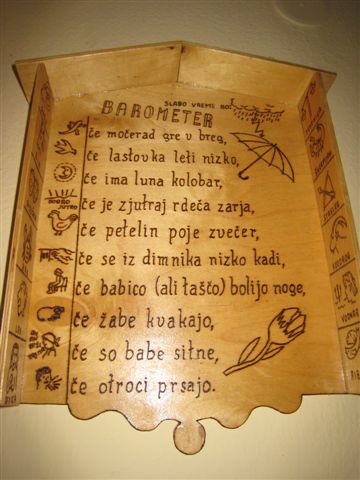 SLABO VREME BO:
BAROMETER
če močerad gre v breg,
če lastovka leti nizko,
če ima luna kolobar,
DOBRO JUTRO
če je zjutraj rdeča zarja,
če petelin poje zvečer,
če se iz dimnika nizko kadi,
če babico (ali taščo) bolijo noge,
če žabe kvakajo,
če so babe sitne,
če otroci prsajo.
LEV
VODNAR